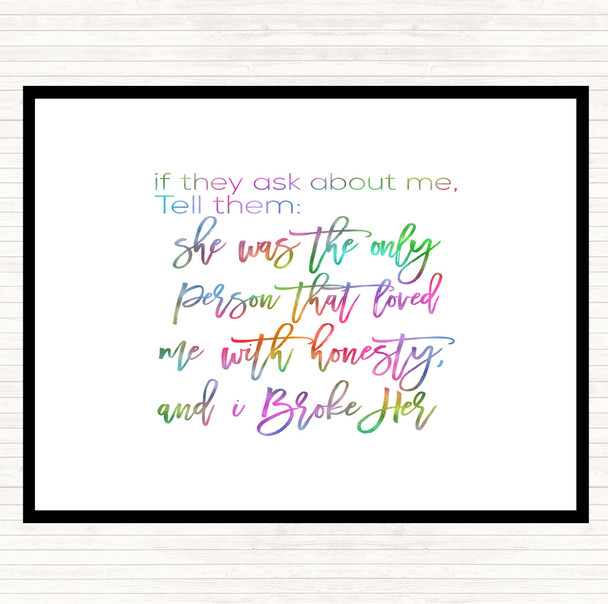 if they ask about me,
Tell them:
she was the only
person that loved
me with honesty,
and i Broke Her